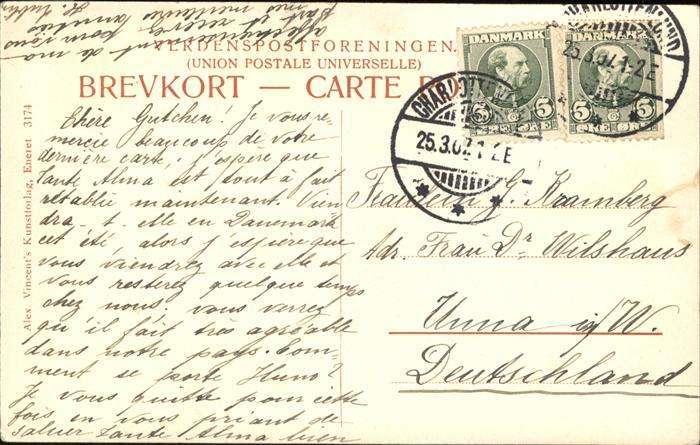 VERDENSPOSTFORENINGEN.
(UNION POSTALE UNIVERSELLE)
BREVKORT — CARTE
DANMARK
5 5
ØRE
DANMARK
5 5
ØRE
CHARLOTTENLUND
25.3.07.1-2E
CHARLOTTENLUND
25.3.07.1-2E
Alex Vincent's Kunstforlag, Eneret 3174
Chère Gutchen! Je vous re-
mercie beaucoup de votre
dernière carte; j'espère que
Tante Alma est tout à fait
rétablie maintenant. Vien
dra-t-elle en Danemark
cet été, alors j'espère que
vous viendrez avec elle et
vous resterez quelque temps
chez nous. vous verrez
qu'il fait très agréable
dans notre pays. Com-
ment se porte Huno?
Je vous quitte pour cette
fois en vous priant de
saluer Tante Alma bien
de ma
part et
Fräulein G. Kramberg
Adr. Frau Dr Wilshaus
Unna i/W.
Deutschland.